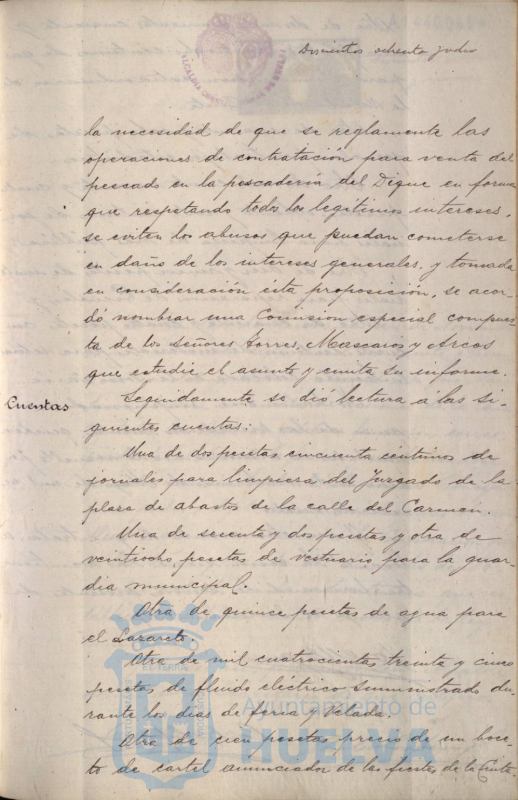 Doscientos ochenta y dos
la necesidad de que se reglamente las
operaciones de contratación para venta del
pescado en la pescadería del Dique en forma
que respetando todos los legítimos intereses,
se eviten los abusos que puedan cometerse
en daño de los intereses generales, y tomada
en consideración ésta proposición, se acor-
dó nombrar una Comisión especial compues-
ta de los Señores Torres, Mascaros y Arcos
que estudie el asunto y emita su informe.
Cuentas
Seguidamente se dió lectura á las si-
guientes cuentas:
Una de dos pesetas cincuenta centimos de
jornales para limpieza del Juzgado de la
plaza de abastos de la calle del Carmen.
Una de sesenta y dos pesetas y otra de
veintiocho pesetas de vestuario para la guar-
dia municipal.
Otra de quince pesetas de agua para
el Lazareto.
Otra de mil cuatrocientas treinta y cinco
pesetas de fluido eléctrico suministrado du-
rante los dias de feria y Velada.
Otra de cien pesetas precio de un boce-
to de cartel anunciador de las fiestas de la Cinta.
Ayuntamiento de
HUELVA